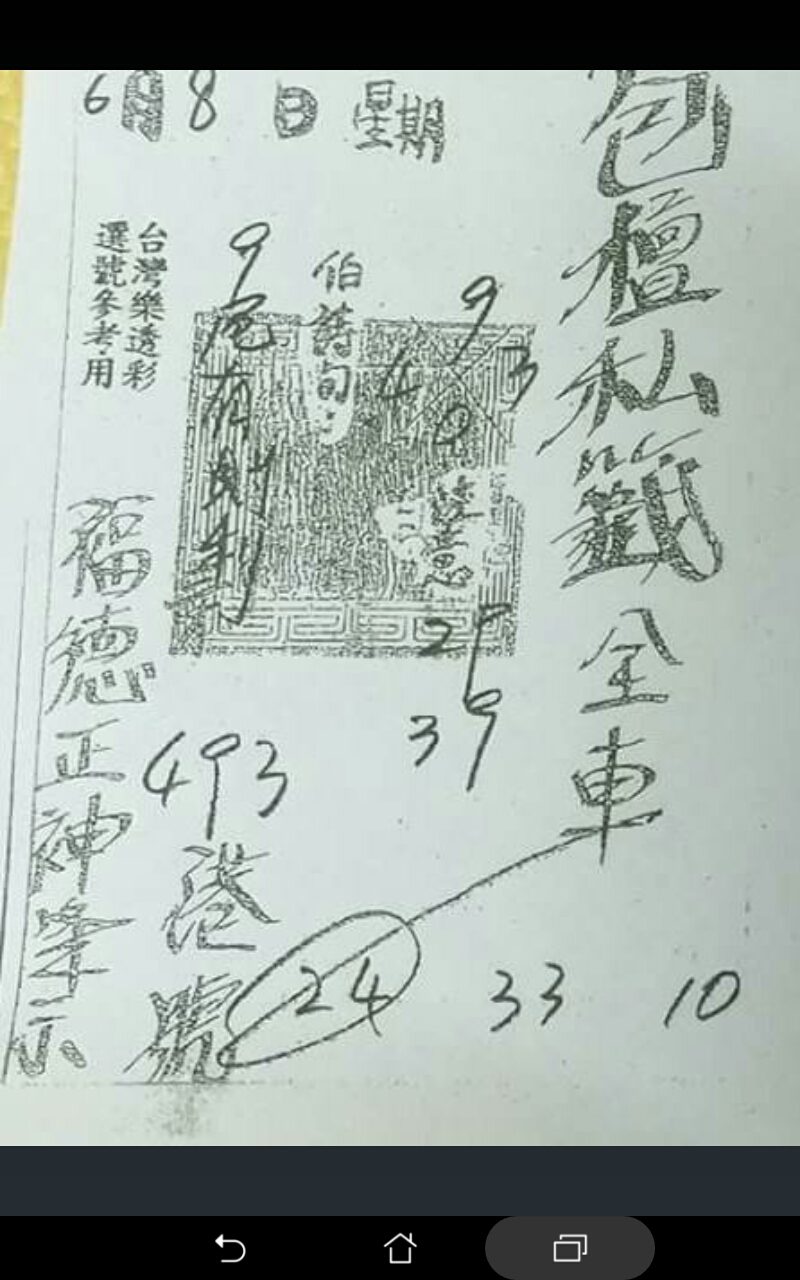 6月8日星期
包壇私籤全車
9
4 3
0
25
39
伯詩句:
9尾有財利
493
港號
24 33 10
台灣樂透彩
選號參考用
福德正神峯示